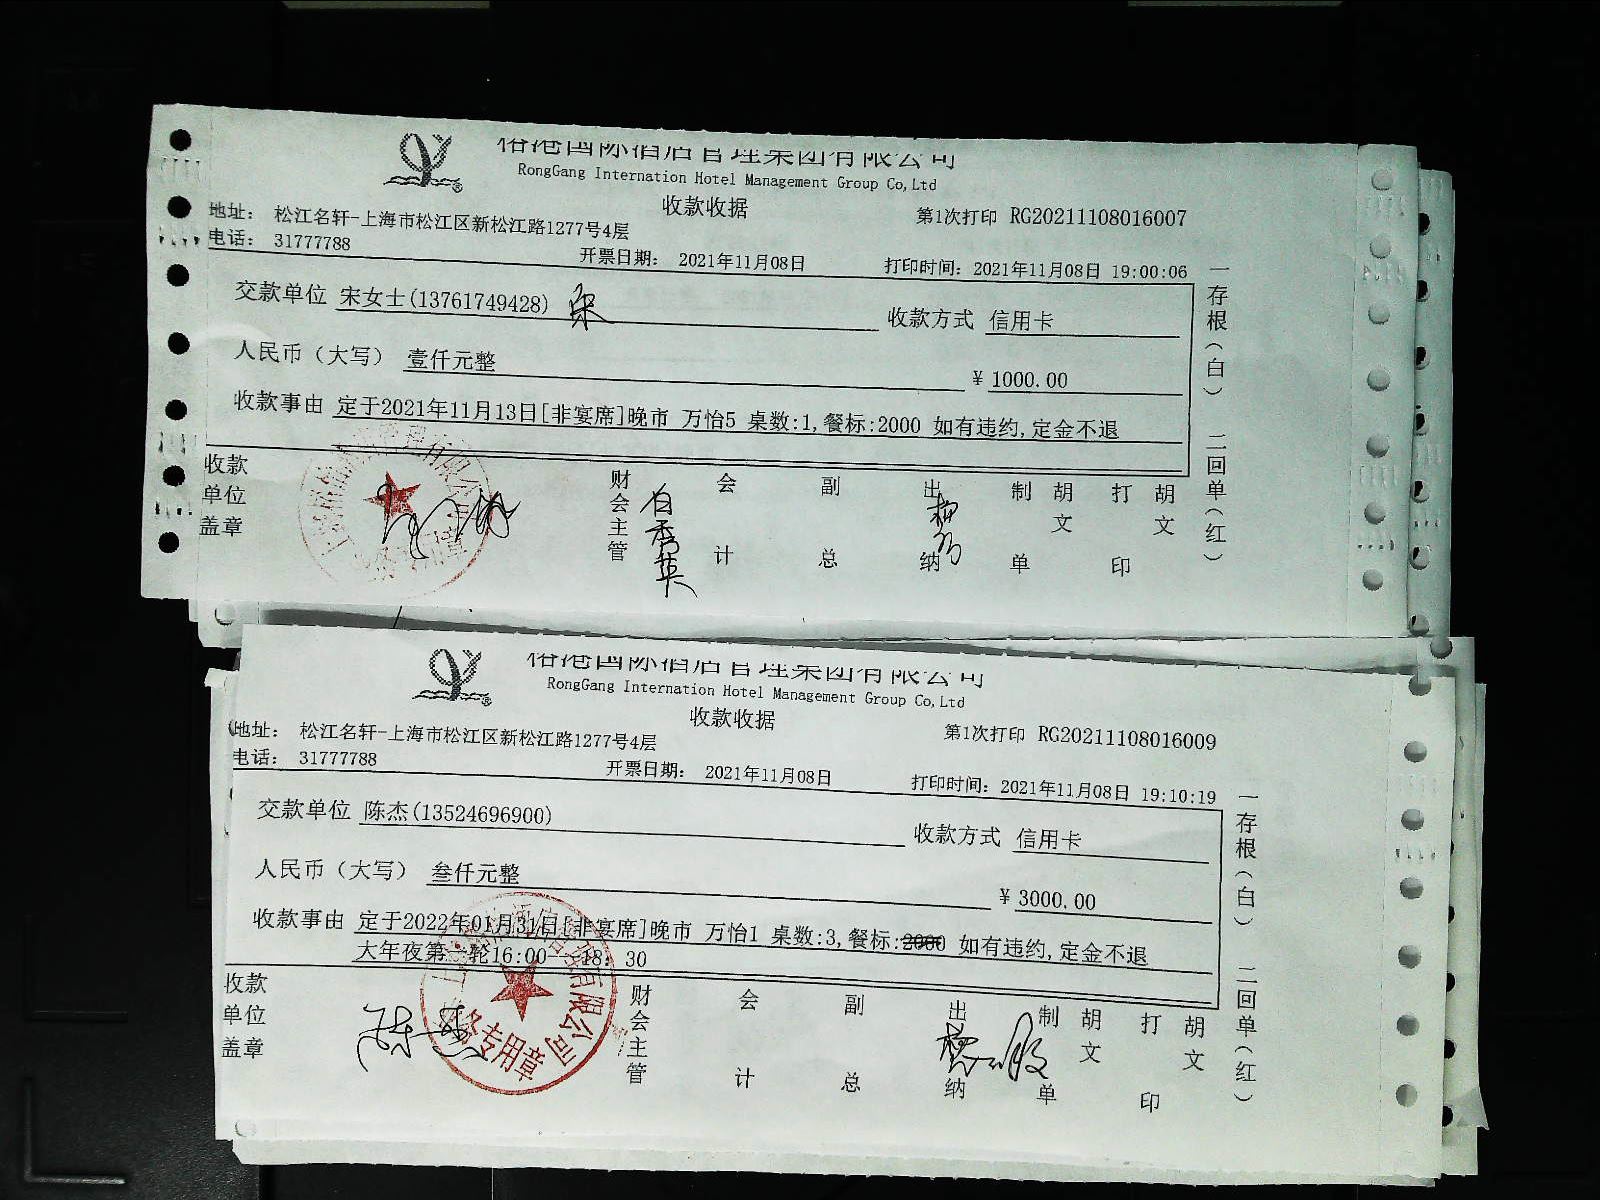 榕港国际酒店管理集团有限公司
RongGang Internation Hotel Management Group Co,Ltd
收款收据
地址： 松江名轩-上海市松江区新松江路1277号4层
第1次打印 RG20211108016007
电话： 31777788
开票日期： 2021年11月08日
打印时间：2021年11月08日 19:00:06
交款单位 宋女士(13761749428) 宋
收款方式 信用卡
人民币（大写） 壹仟元整
￥ 1000.00
收款事由 定于2021年11月13日[非宴席]晚市 万怡5 桌数:1,餐标:2000 如有违约,定金不退
收款单位盖章
财会主管 白秀英 会计 副总 出纳 制单 胡文 打印 胡文
一存根（白） 二回单（红）
榕港国际酒店管理集团有限公司
RongGang Internation Hotel Management Group Co,Ltd
收款收据
地址： 松江名轩-上海市松江区新松江路1277号4层
第1次打印 RG20211108016009
电话： 31777788
开票日期： 2021年11月08日
打印时间：2021年11月08日 19:10:19
交款单位 陈杰(13524696900)
收款方式 信用卡
人民币（大写） 叁仟元整
￥ 3000.00
收款事由 定于2022年01月31日[非宴席]晚市 万怡1 桌数:3,餐标:2000 如有违约,定金不退
大年夜第一轮16:00-18：30
收款单位盖章
专用章
财会主管 会计 副总 出纳 制单 胡文 打印 胡文
一存根（白） 二回单（红）